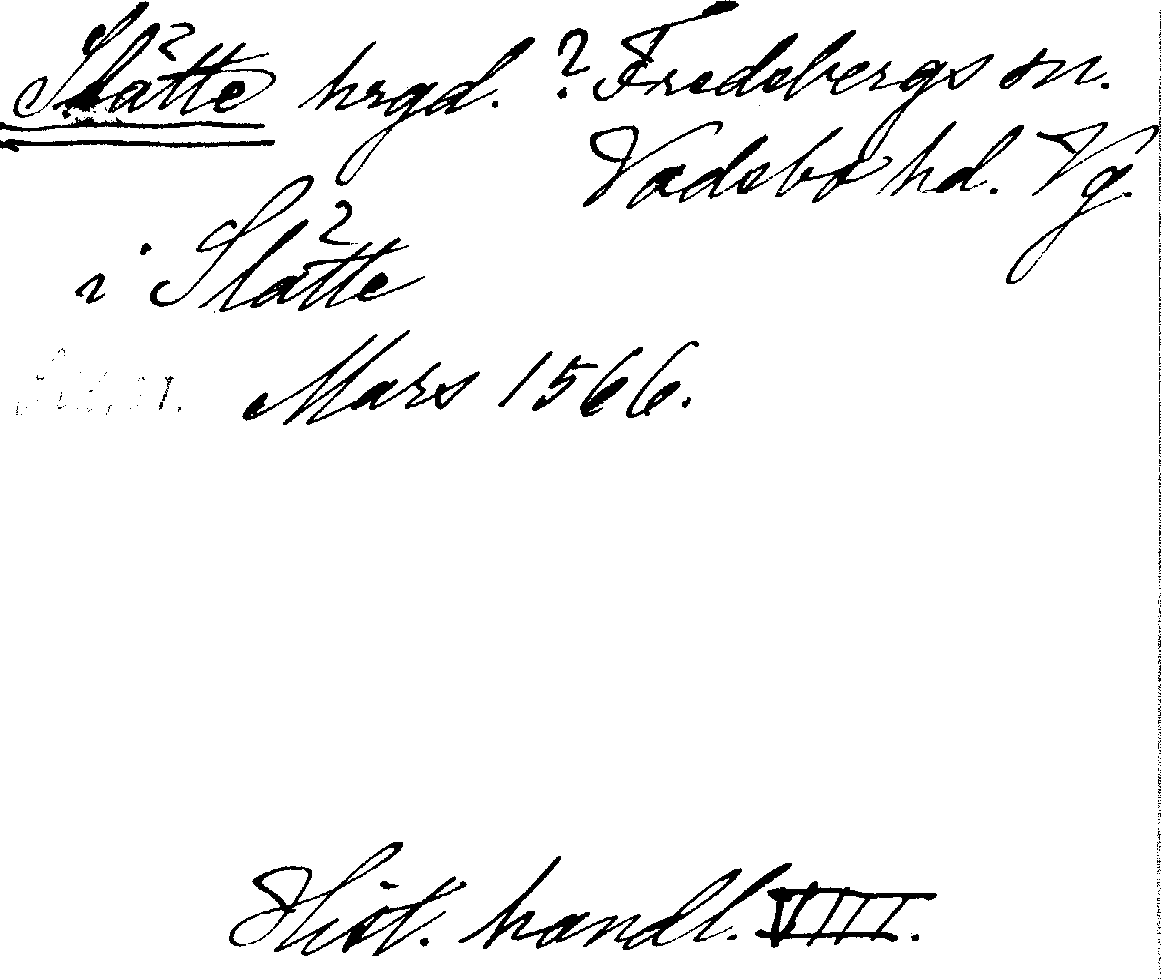 Slätte hrgd. ? Fredsbergs sn.
Vadsbo hd. Vg.
i Slåtte
Mars 1566.
Hist. handl. VIII.